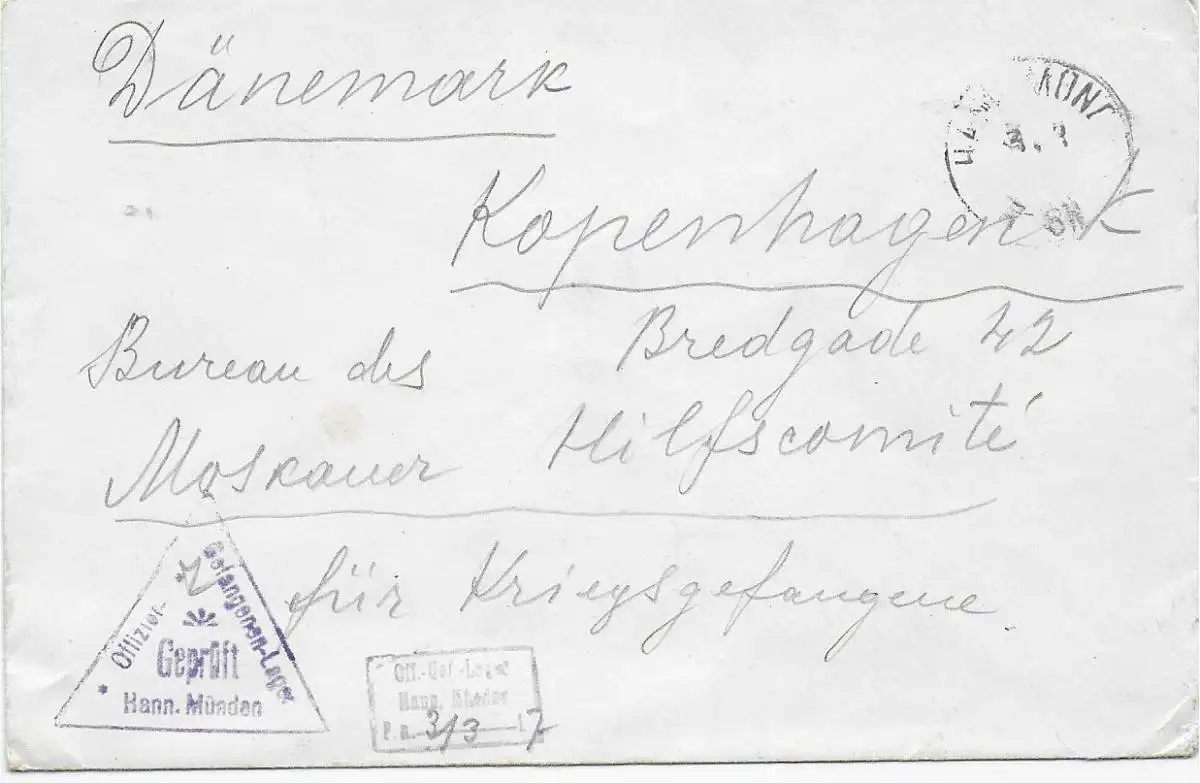 Dänemark
Kopenhagen K
Bredgade 42
Bureau des
Moskauer Hilfscomité
für Kriegsgefangene
Offizier-Gefangenen-Lager
Geprüft
Hann. Münden
Off.-Gef.-Lager
Hann. Münden
F. a. 3/3 17